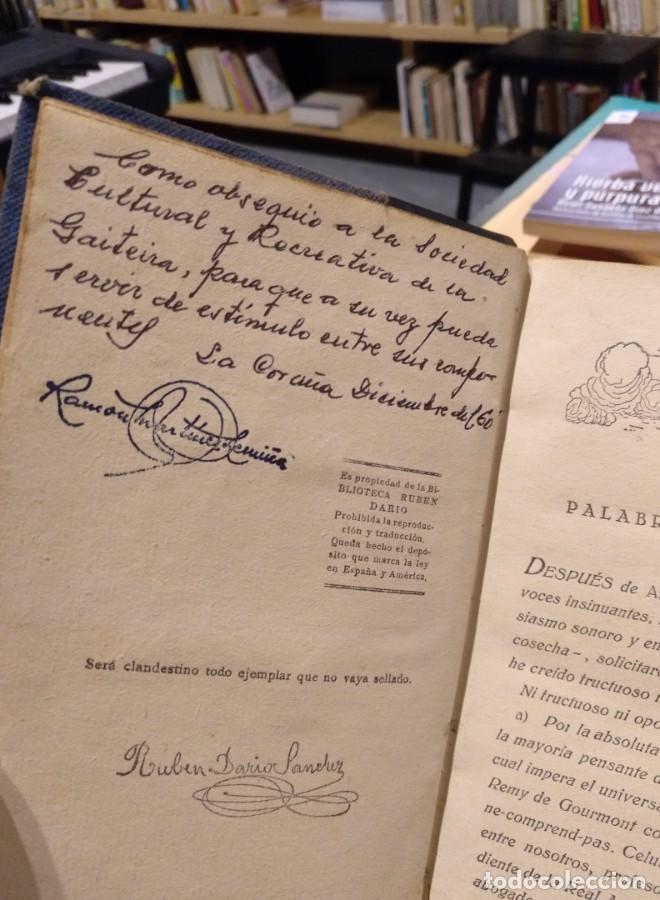 Como obsequio a la Sociedad
Cultural y Recreativa de la
Gaiteira, para que a su vez pueda
servir de estímulo entre sus compo-
nentes
La Coruña Diciembre del 60
Ramón Martínez
Es propiedad de la Bi-
BLIOTECA RUBEN
DARIO
Prohibida la reproduc-
ción y traducción.
Queda hecho el depó-
sito que marca la ley
en España y América.
Será clandestino todo ejemplar que no vaya sellado.
Ruben Dario Sanchez
Hierba
y púrpura
PALABR
DESPUÉS de A
voces insinuantes,
siasmo sonoro y en
cosecha-, solicitar
he creído fructuoso
Ni fructuoso ni opo
a) Por la absoluta
la mayoría pensante d
cual impera el universa
Remy de Gourmont co
ne-comprend-pas. Celu
entre nosotros, profeso
diente de la Real A
abogado
todocoleccion